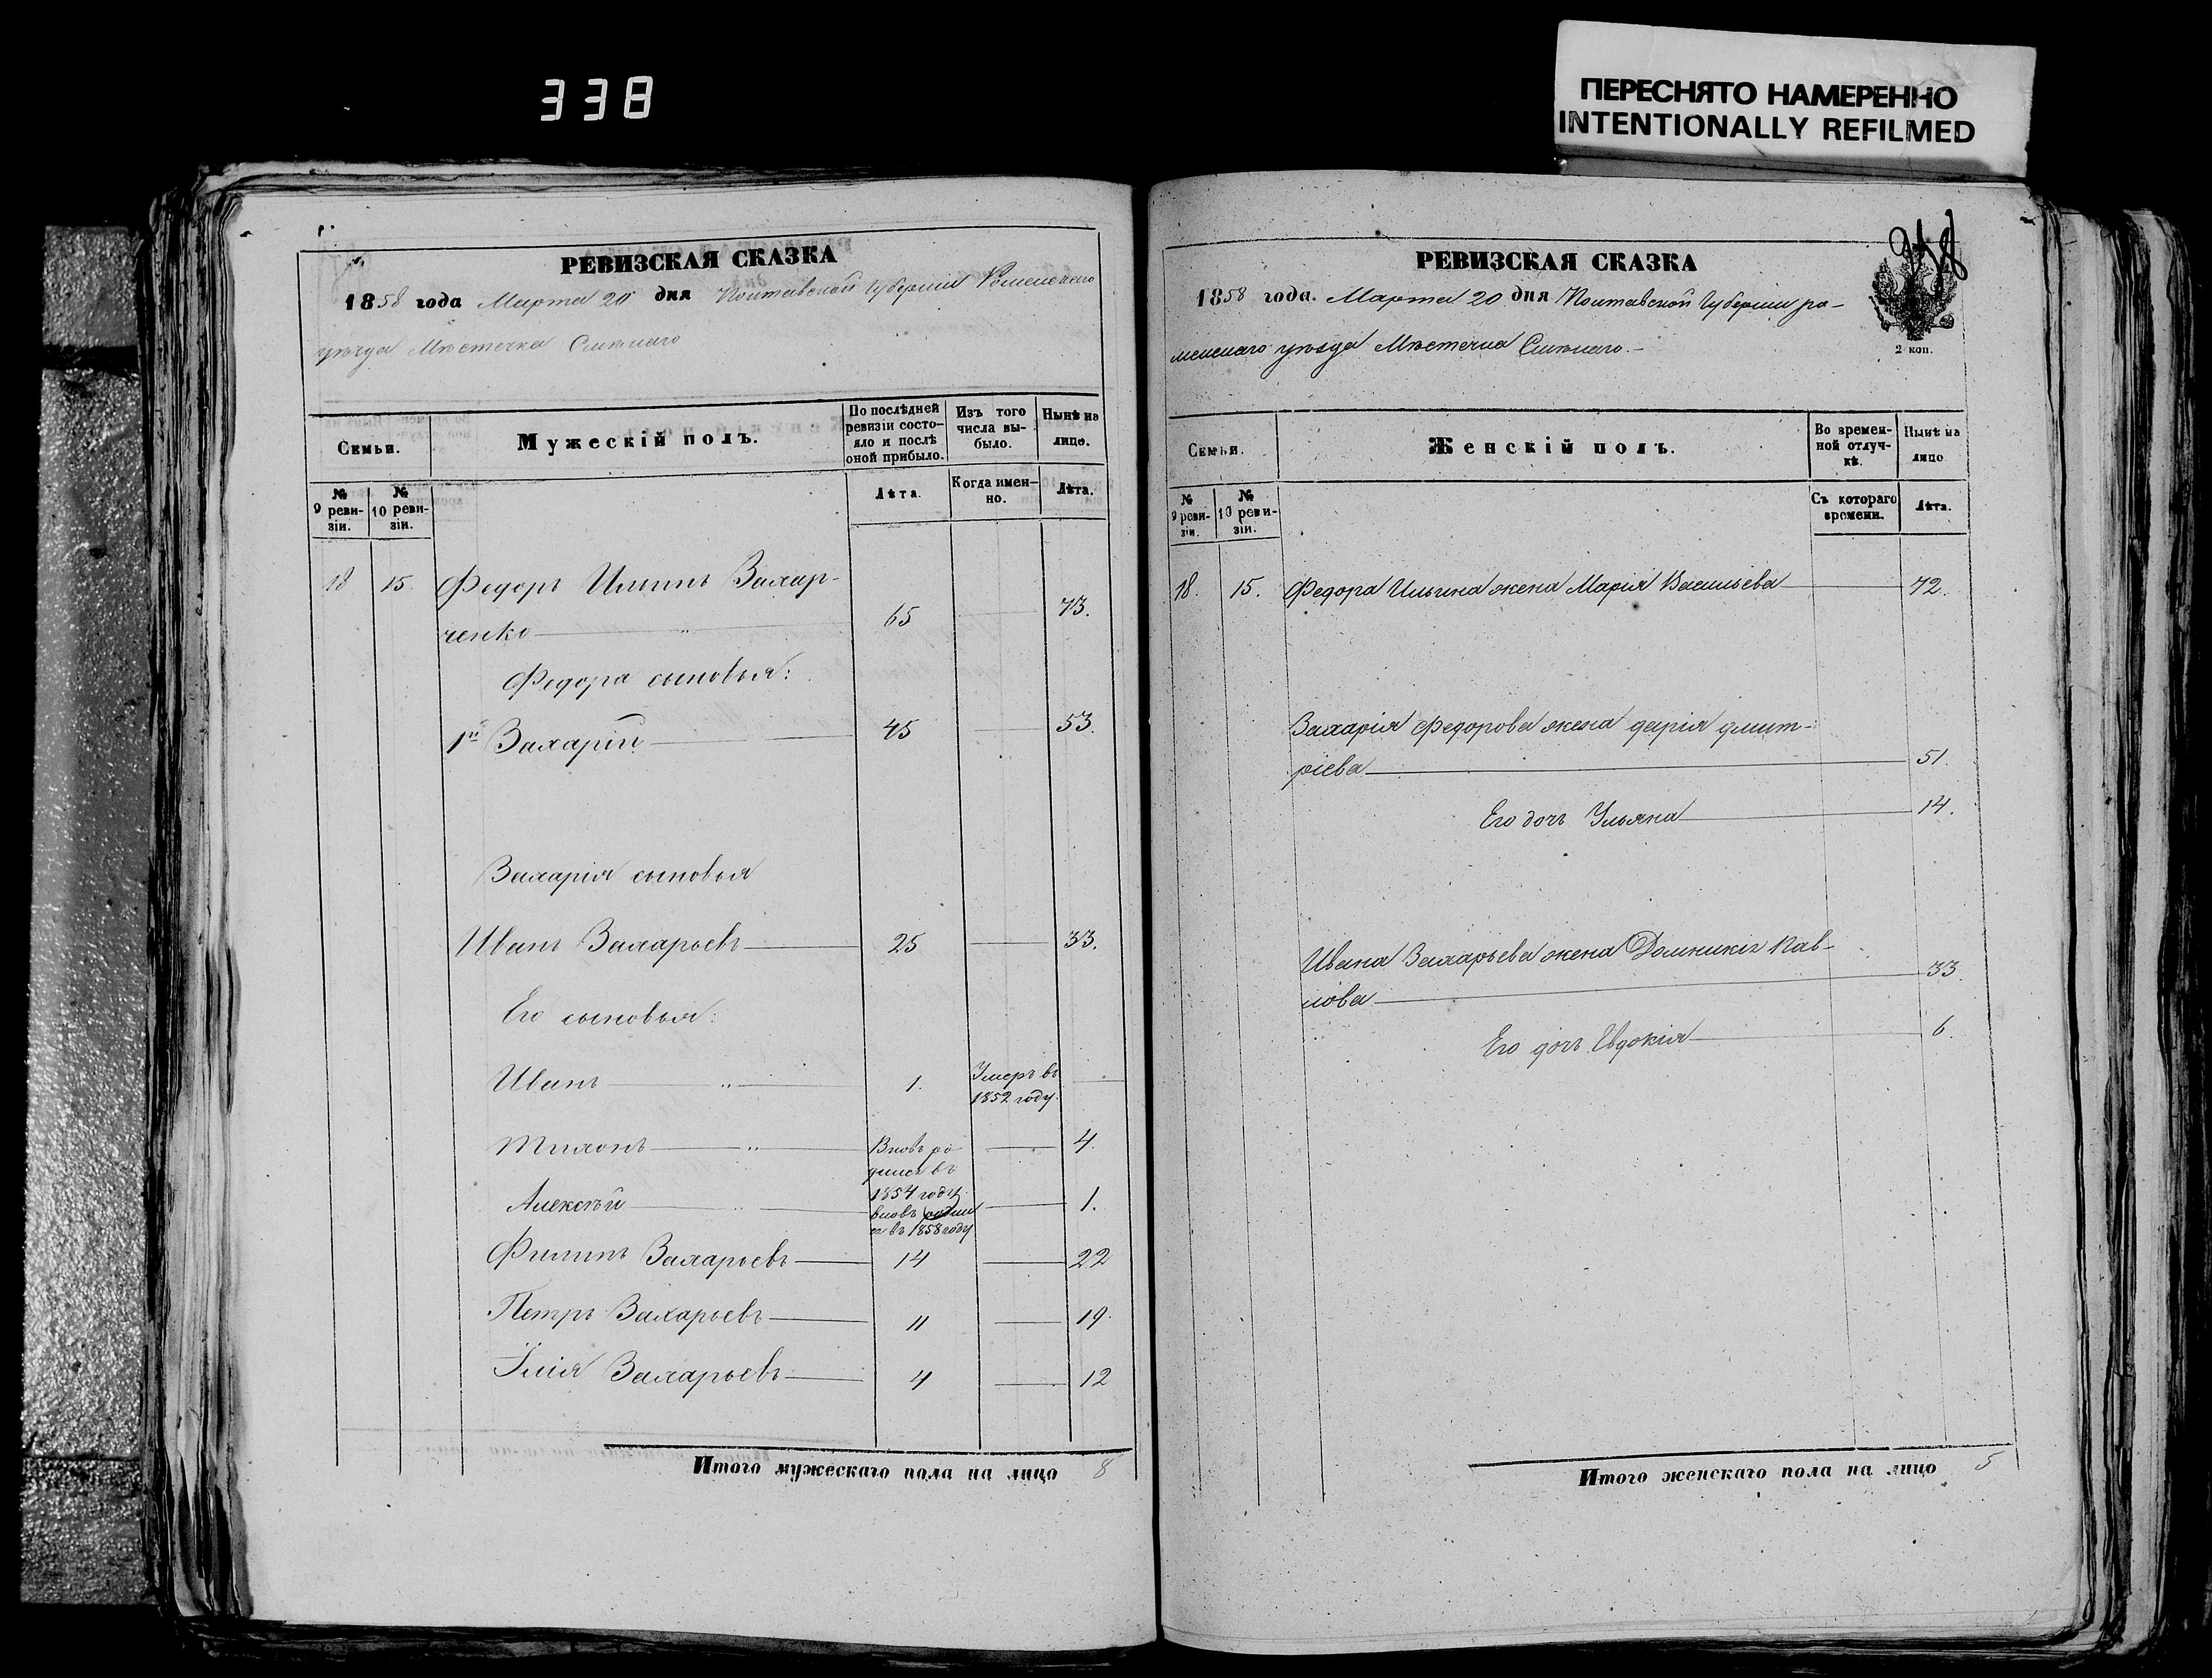 338
ПЕРЕСНЯТО НАМЕРЕННО
INTENTIONALLY REFILMED
РЕВИЗСКАЯ СКАЗКА
1858 года Марта 20 дня Полтавской Губерніи Роменскаго
уѣзда Мѣстечка Смѣлаго
Семьи.
Мужескій полъ.
По послѣдней
ревизіи состо-
яло и послѣ
оной прибыло.
Изъ того
числа вы-
было.
Нынѣ на
лицо.
№
9 реви-
зіи.
№
10 реви-
зіи.
Лѣта.
Когда имен-
но.
Лѣта.
18 15. Федоръ Ильинъ Захар-
ченко 65 73.
Федора сыновья:
1й Захарій 45 53.
Захарія сыновья
Иванъ Захарьевъ 25 33.
Его сыновья:
Иванъ 1. Умеръ въ
1852 году.
Тихонъ Вновь ро
дился въ
1854 году 4.
Алексѣй вновь родил
ся въ 1858 году 1.
Филипъ Захарьевъ 14 22
Петръ Захарьевъ 11 19.
Илія Захарьевъ 4 12
Итого мужескаго пола на лицо 8
РЕВИЗСКАЯ СКАЗКА
1858 года. Марта 20 дня Полтавской Губерніи ро-
менскаго уѣзда Мѣстечка Смѣлаго.-
2 коп.
Семьи.
Женскій полъ.
Во времен-
ной отлуч-
кѣ.
Нынѣ на
лицо
№
9 реви-
зіи.
№
10 реви-
зіи.
Съ котораго
времени.
Лѣта.
18. 15. Федора Ильина жена Марія Васильева 72.
Захарія Федорова жена дарія дмит-
ріева 51.
Его дочь Ульяна 14.
Ивана Захарьева жена Домникія Пав-
лова 33.
Его дочь Евдокія 6.
Итого женскаго пола на лицо 5